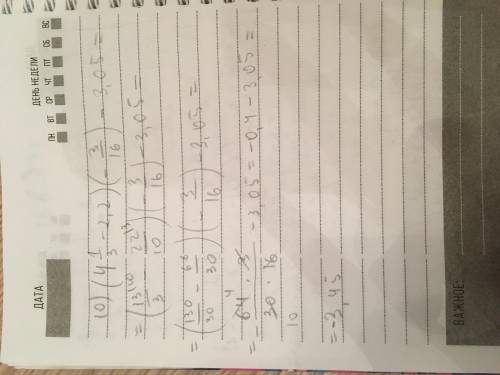 ДАТА
ДЕНЬ НЕДЕЛИ
ПН ВТ СР ЧТ ПТ СБ ВС
10) (4 1/3 - 2,2)(-3/16) - 3,05 =
= (13/3 ^10 - 22/10 ^3)(-3/16) - 3,05 =
= (130/30 - 66/30)(-3/16) - 3,05 =
= - (64 ^4 · 3)/(30 · 16) - 3,05 = -0,4 - 3,05 =
10
= -3,45
ВАЖНОЕ: